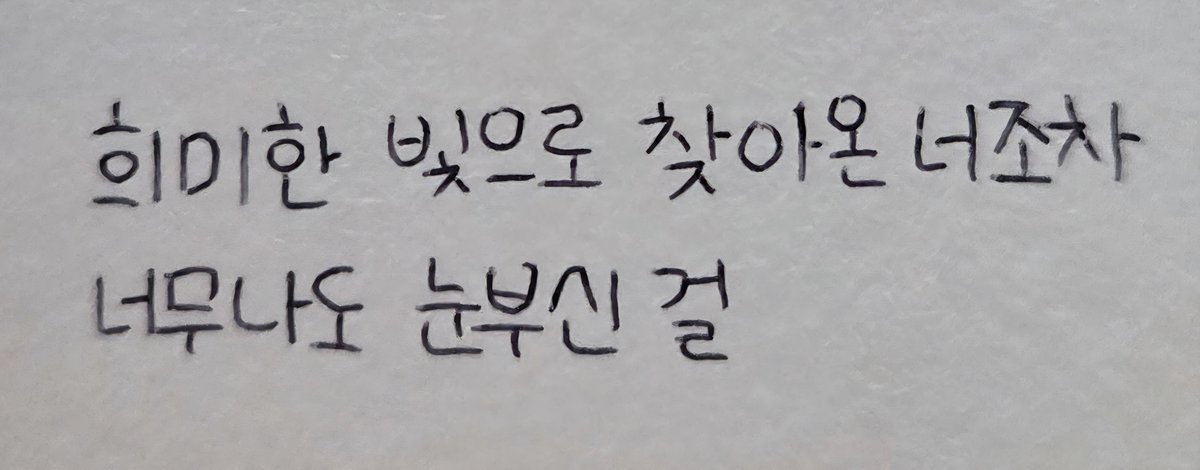 희미한 빛으로 찾아온 너조차
너무나도 눈부신 걸